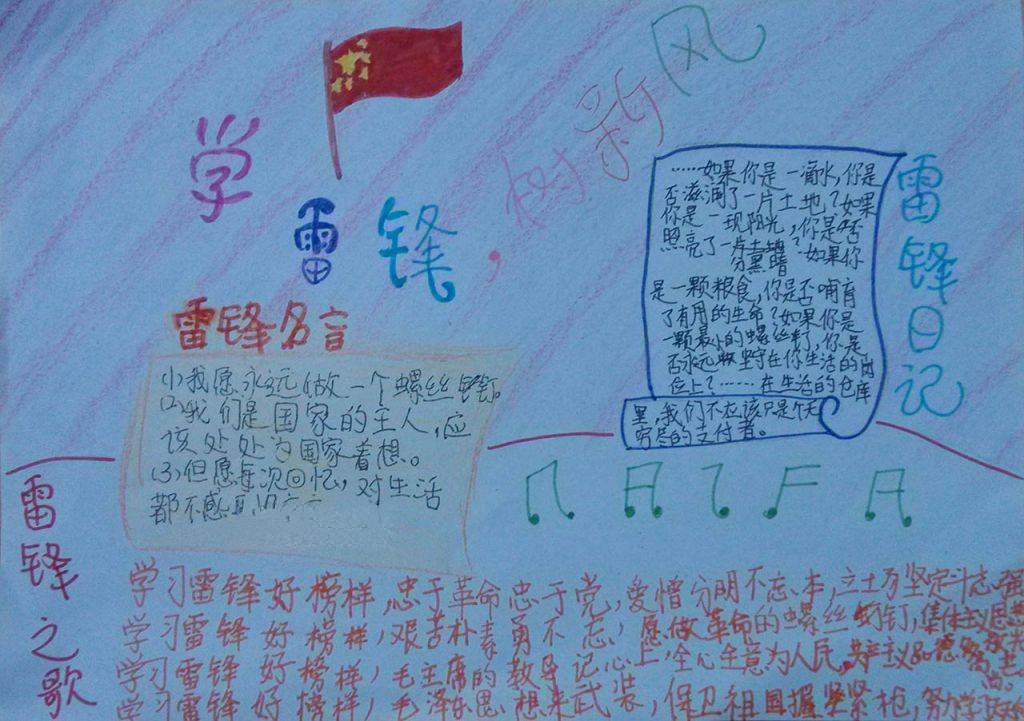 学雷锋,树新风
雷锋名言
(1)我愿永远做一个螺丝钉。
(2)我们是国家的主人,应
该处处为国家着想。
(3)但愿每次回忆,对生活
都不感
雷锋日记
……如果你是一滴水,你是
否滋润了一片土地?如果
你是一线阳光,你是否
照亮了一分黑暗?如果你
是一颗粮食,你是否哺育
了有用的生命?如果你是
一颗最小的螺丝钉,你是
否永远坚守在你生活的岗
位上?……在生活的仓库
里,我们不应该只是个无
穷尽的支付者。
雷锋之歌
学习雷锋好榜样,忠于革命忠于党,爱憎分明不忘本,立土方坚定斗志强
学习雷锋好榜样,艰苦朴素勇不忘,愿做革命的螺丝钉,集体主义思想放光
学习雷锋好榜样,毛主席的教导记心上,全心全意为人民,共产主义品德多高尚。
学习雷锋好榜样,毛泽东思想来武装,保卫祖国握紧枪,努力学习